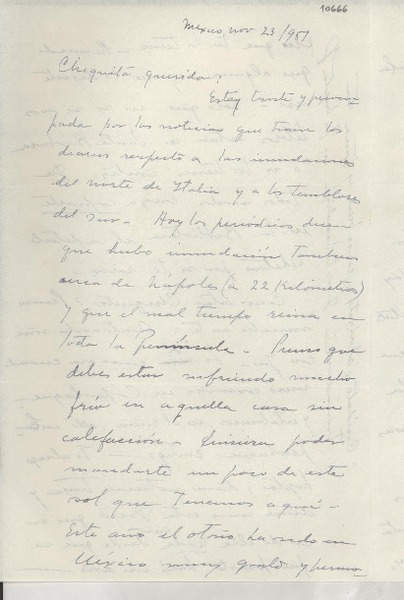 10666
México, nov 23/951
Chiquita querida:
Estoy triste y preocu-
pada por las noticias que traen los
diarios respecto a las inundaciones
del norte de Italia y a los temblores
del sur - Hoy los periódicos dicen
que hubo inundación tambien
cerca de Nápoles (a 22 kilómetros)
y que el mal tiempo reina en
toda la Península - Pienso que
debes estar sufriendo mucho
frío en aquella casa sin
calefaccion - Quisiera poder
mandarte un poco de este
sol que tenemos aquí -
Este año el otoño ha sido en
México muy